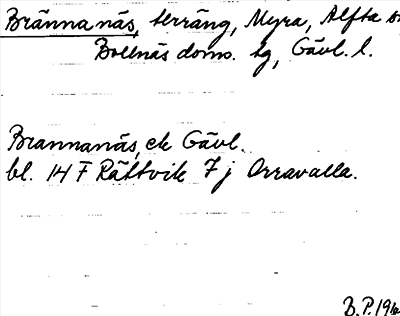 Bränna näs, terräng, Myra, Alfta
Bollnäs doms. tg, Gävl. l.
Brannanäs, ek Gävl.
bl. 14 F Rättvik 7 j Orravalla.
B.P.